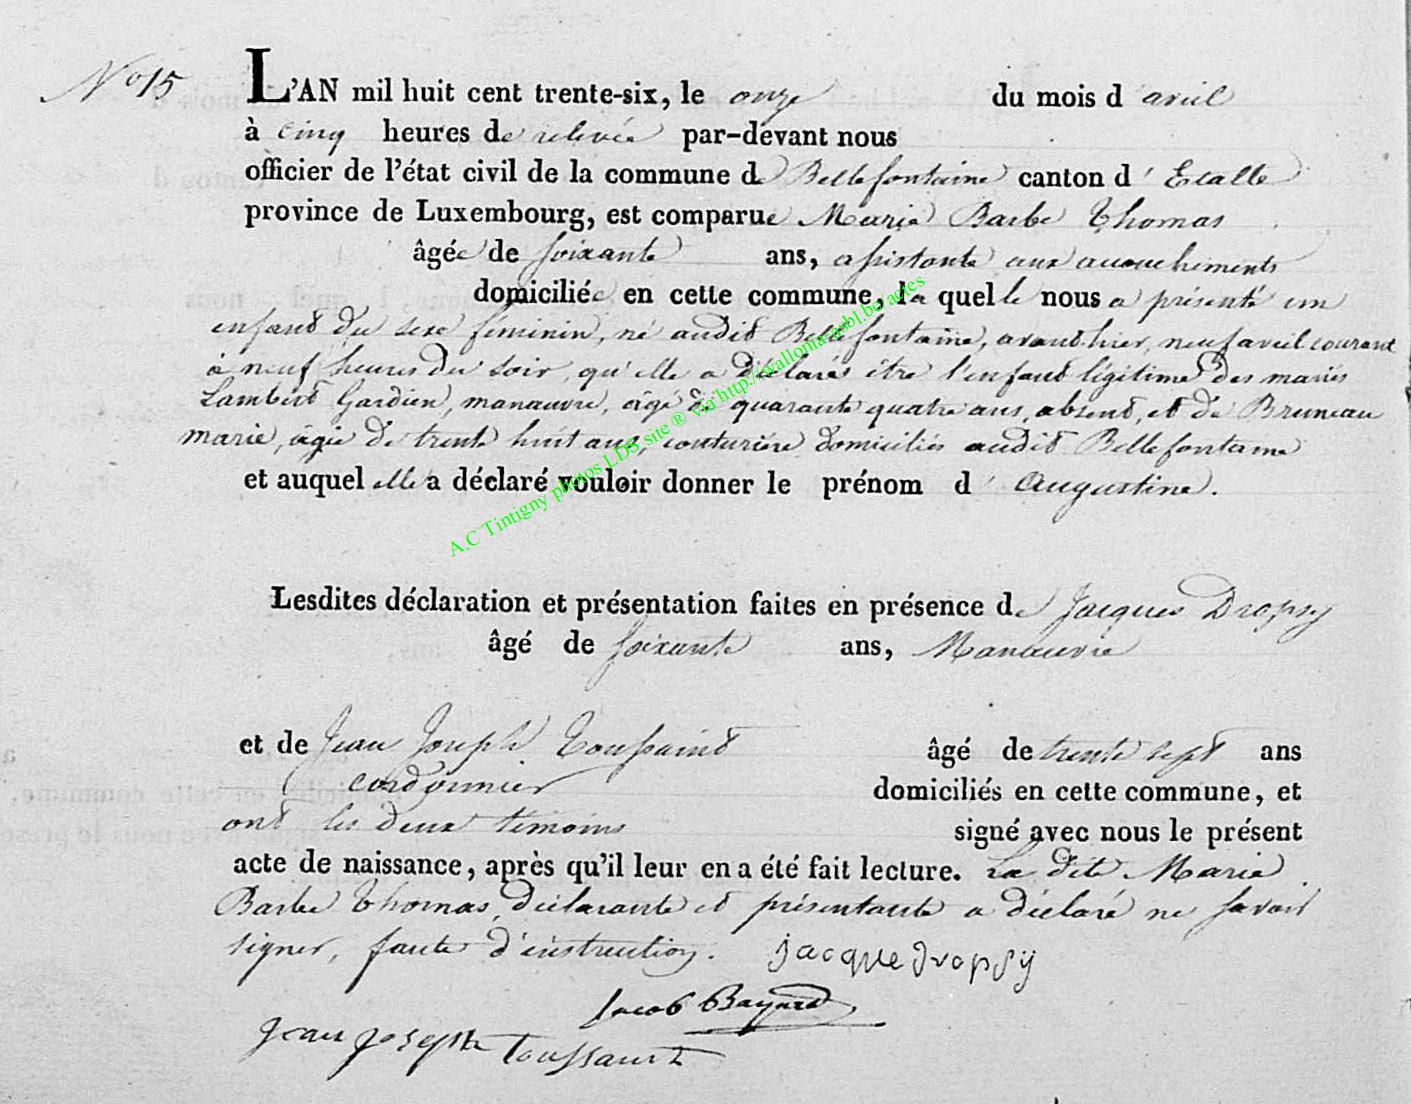 No 15
L'AN mil huit cent trente-six, le onze du mois d'avril
à cinq heures de relevée par-devant nous
officier de l'état civil de la commune de Bellefontaine canton d'Etalle
province de Luxembourg, est comparue Marie Barbe Thomas
âgée de soixante ans, assistante aux accouchements
domiciliée en cette commune, la quelle nous a présenté un
enfant du sexe féminin, né audit Bellefontaine, avant hier, neuf avril courant
à neuf heures du soir, qu'elle a déclaré être l'enfant légitime des mariés
Lambert Gardien, manœuvre, âgé de quarante quatre ans, absent, et de Bruneau
marie, âgée de trente huit ans, couturière domiciliés audit Bellefontaine
et auquel elle a déclaré vouloir donner le prénom d'Augustine.
A.C Tintigny photos LDS site ® via http://wallonia-asbl.be/actes
Lesdites déclaration et présentation faites en présence de Jacques Dropsy
âgé de soixante ans, Manœuvre
et de Jean Joseph Toussaint âgé de trente sept ans
cordonnier domiciliés en cette commune, et
ont les deux témoins signé avec nous le présent
acte de naissance, après qu'il leur en a été fait lecture. La dite Marie
Barbe Thomas, déclarante et présentante a déclaré ne savoir
signer, faute d'instruction. jacque dropsy
Jacob Bayard
Jean joseph toussaint